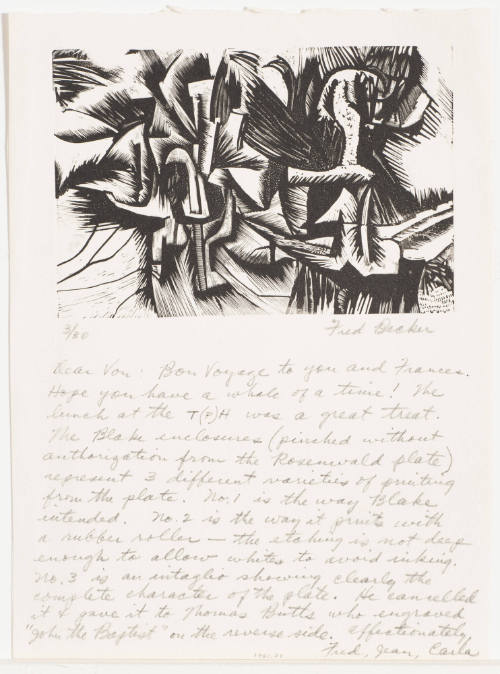 3/30 Fred Becker
Dear Von: Bon Voyage to you and Frances.
Hope you have a whale of a time! The
lunch at the T(P)H was a great treat.
The Blake enclosures (pinched without
authorization from the Rosenwald plate)
represent 3 different varieties of printing
from the plate. No. 1 is the way Blake
intended. No. 2 is the way it prints with
a rubber roller — the etching is not deep
enough to allow whites to avoid inking.
No. 3 is an intaglio showing clearly the
complete character of the plate. He cancelled
it & gave it to Thomas Butts who engraved
"John the Baptist" on the reverse side. Affectionately,
Fred, Jean, Carla